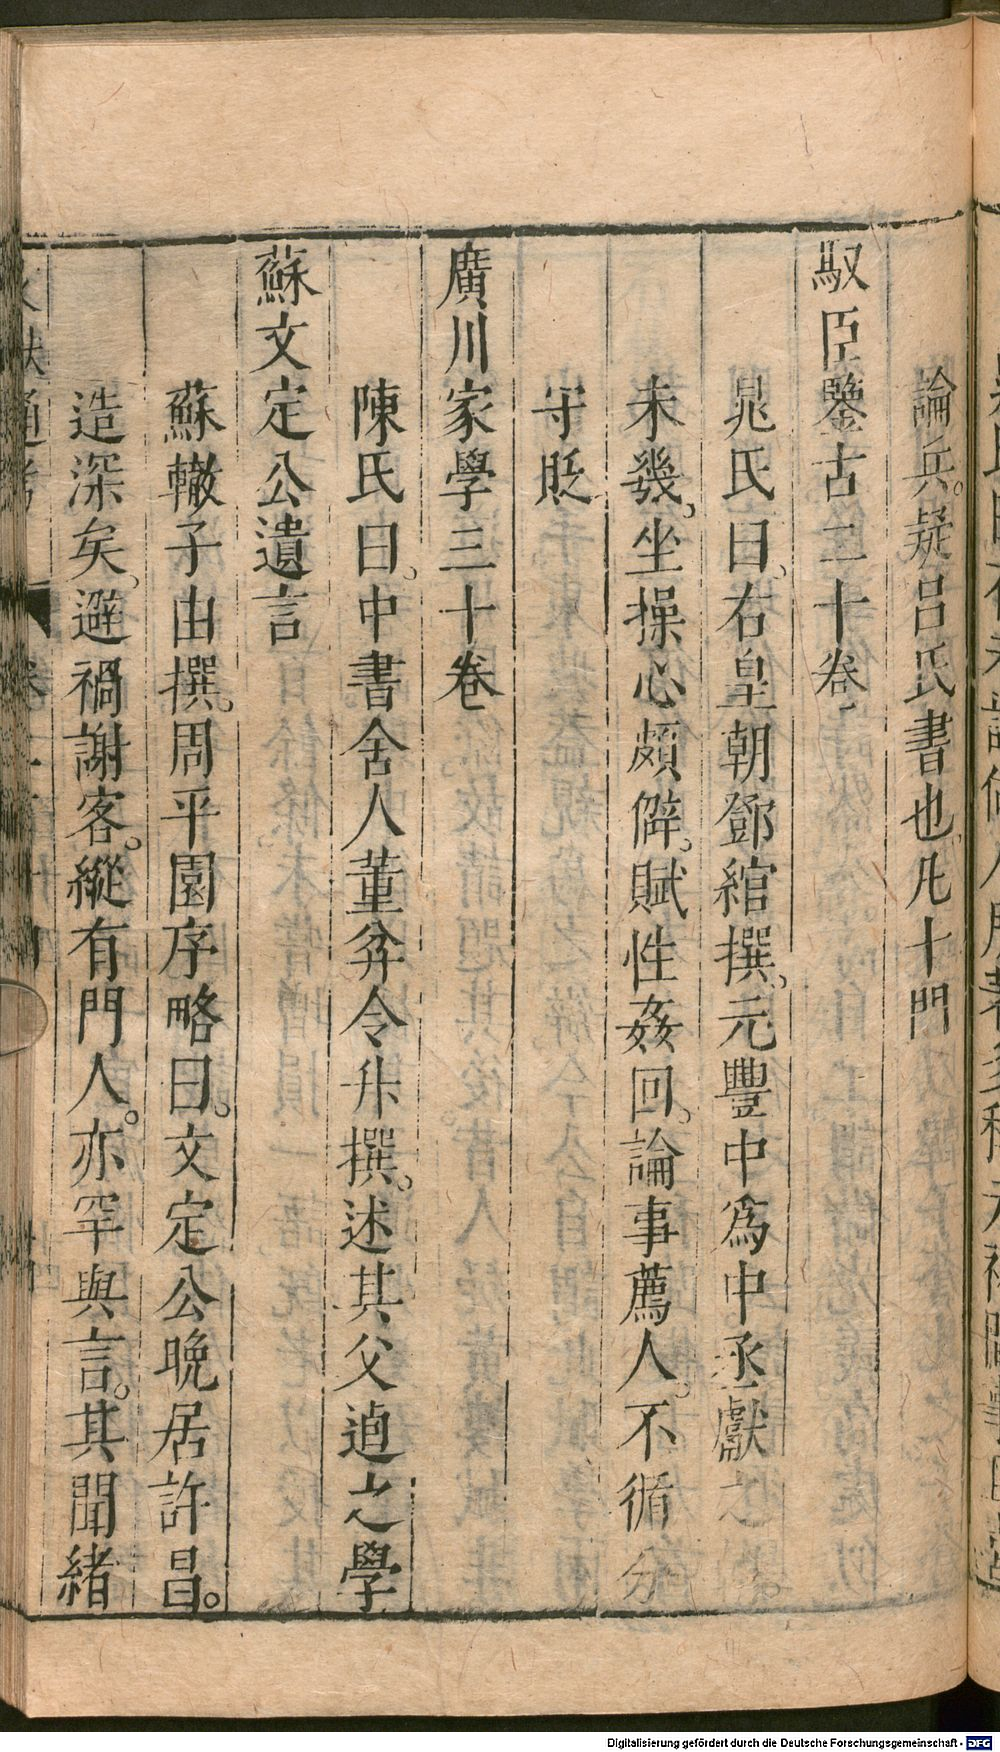 論兵。疑呂氏書也。凡十門
馭臣鑒古二十卷
晁氏曰。右皇朝鄧綰撰。元豐中爲中丞獻之
未幾。坐操心頗僻。賦性姦回。論事薦人。不循分
守貶
廣川家學三十卷
陳氏曰。中書舍人董弅令升撰。述其父逌之學
蘇文定公遺言
蘇轍子由撰。周平園序略曰。文定公晚居許昌。
造深矣。避禍謝客。縱有門人。亦罕與言。其聞緒
通考 卷
Digitalisierung gefördert durch die Deutsche Forschungsgemeinschaft - DFG